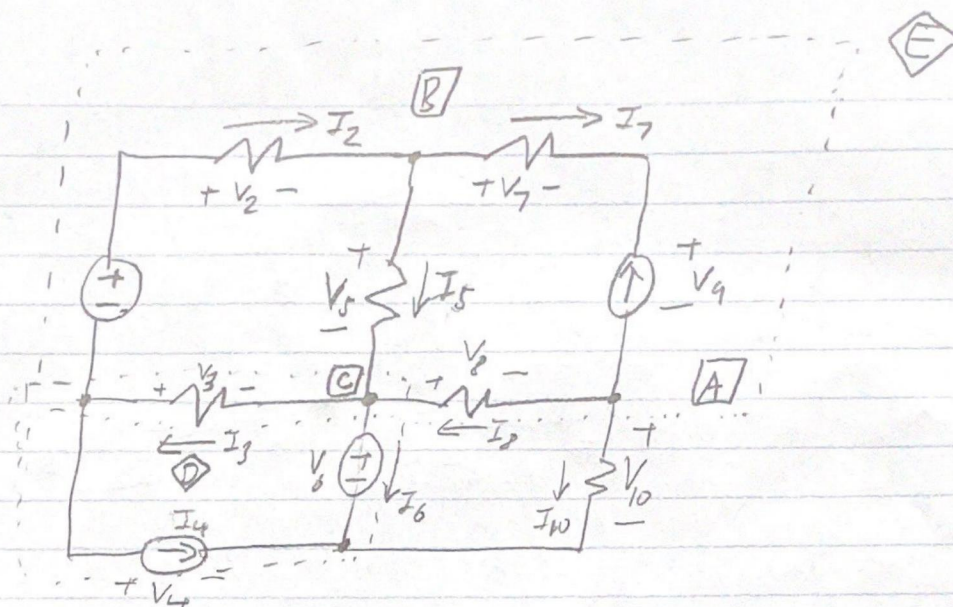 E
B
I2
I7
+ V2 -
+ V7 -
+
-
+
V5
-
I5
+
V9
-
+ V3 -
C
+ V8 -
A
I3
I8
D
V6
+
-
I6
+
V10
-
I10
I4
+ V4 -